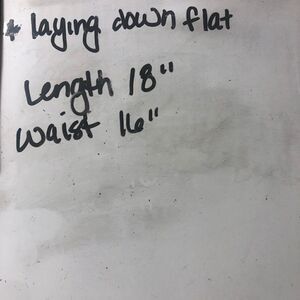 * laying down flat
Length 18"
Waist 16"